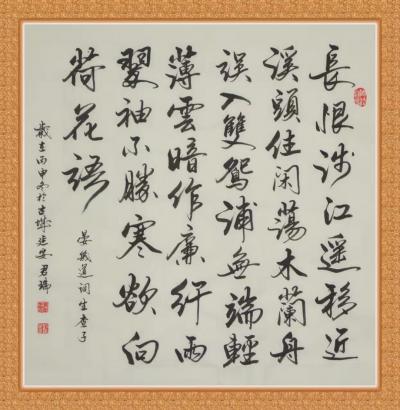 長恨涉江遥移近
溪頭住闲蕩木蘭舟
误入雙鴛浦無端輕
薄雲暗作廉纤雨
翠袖不勝寒欲向
荷花语
晏幾道词生查子
歲在丙申冬於古城延安君瑞